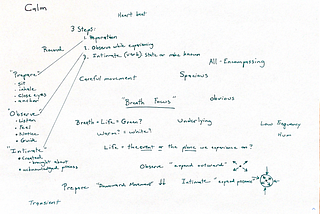 Calm
Heart beat
3 Steps:
1. Preparation
Round
2. Observe while experiencing
3. Intimate (verb) state or make known
All-Encompassing
"Prepare"
- Sit
- inhale
- Close eyes
- anchor
Careful movement
Spacious
"Breath Focus"
obvious
"Observe"
- Listen
- Feel
- Notice
- Guide
Breath = Life = Green?
Underlying
Low Frequency
Hum
Warm? = White?
"Intimate"
- Created
- brought about
- acknowledged process
Life = the event or the place we experience on?
Observe "expand outward"
Prepare "Downward Movement"
Intimate "expand presence"
Transient